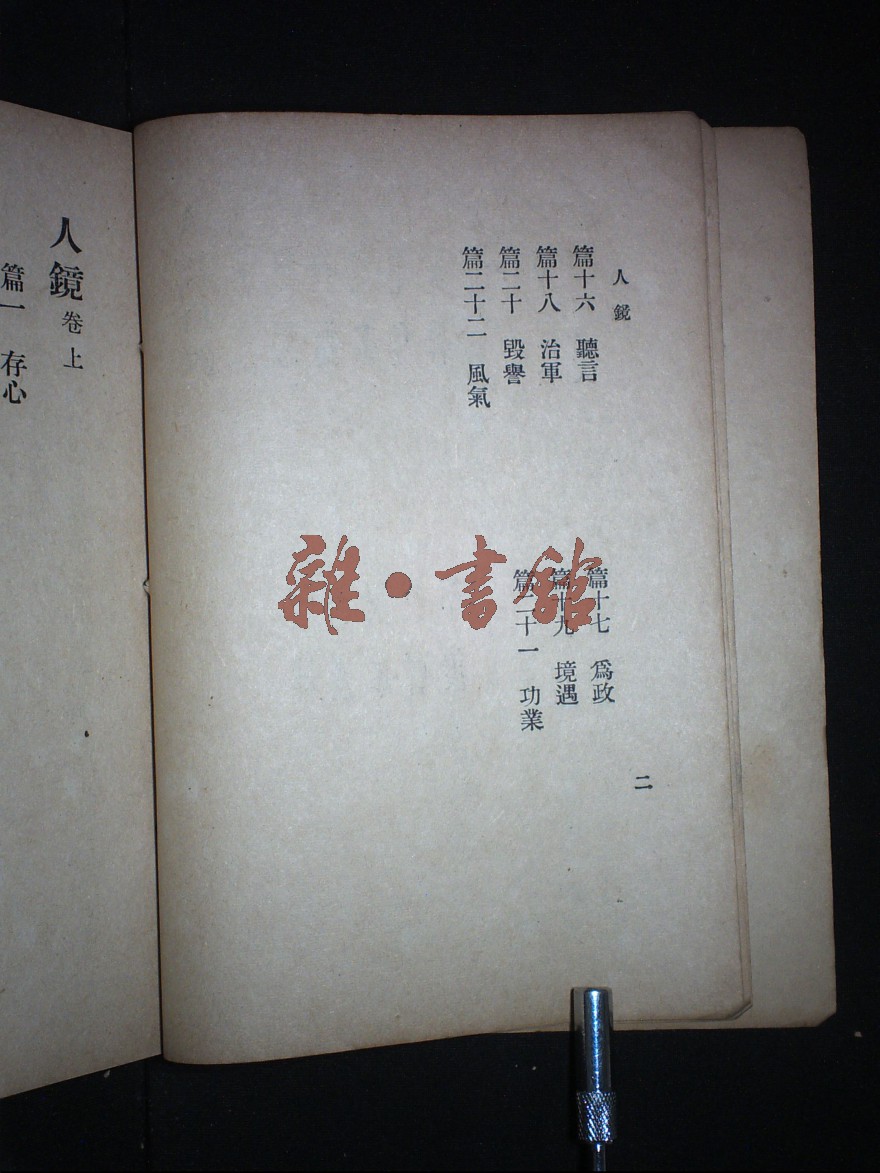 人鏡
篇十六 聽言
篇十七 爲政
篇十八 治軍
篇十九 境遇
篇二十 毀譽
篇二十一 功業
篇二十二 風氣
二
人鏡 卷上
篇一 存心
雜·書館